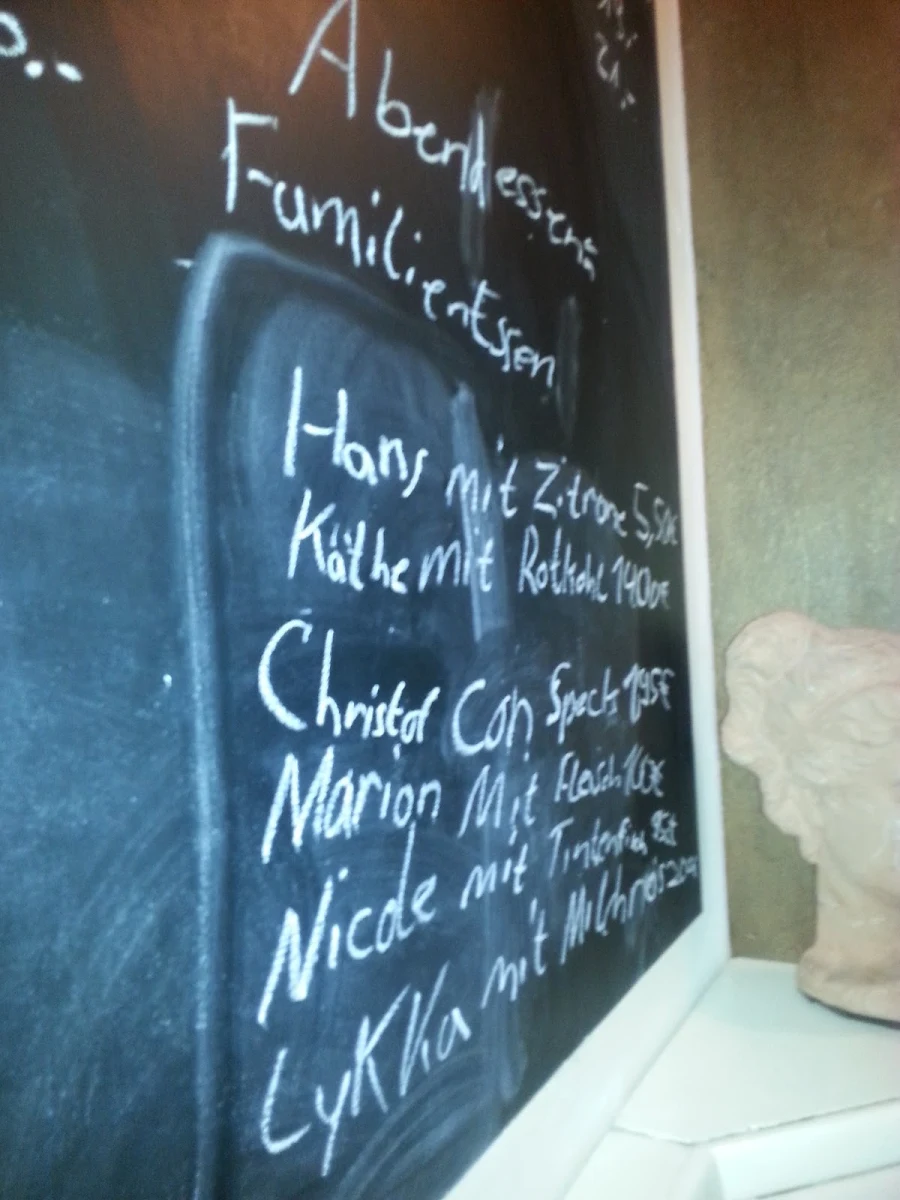 Abendessen:
FamilienEssen
Hans mit Zitrone 5,50€
Käthe mit Rotkohl 1400€
Christof Con Speck 195€
Marion Mit Fleisch 100€
Nicole mit Tintenfisch
LyKKa mit Milchreis